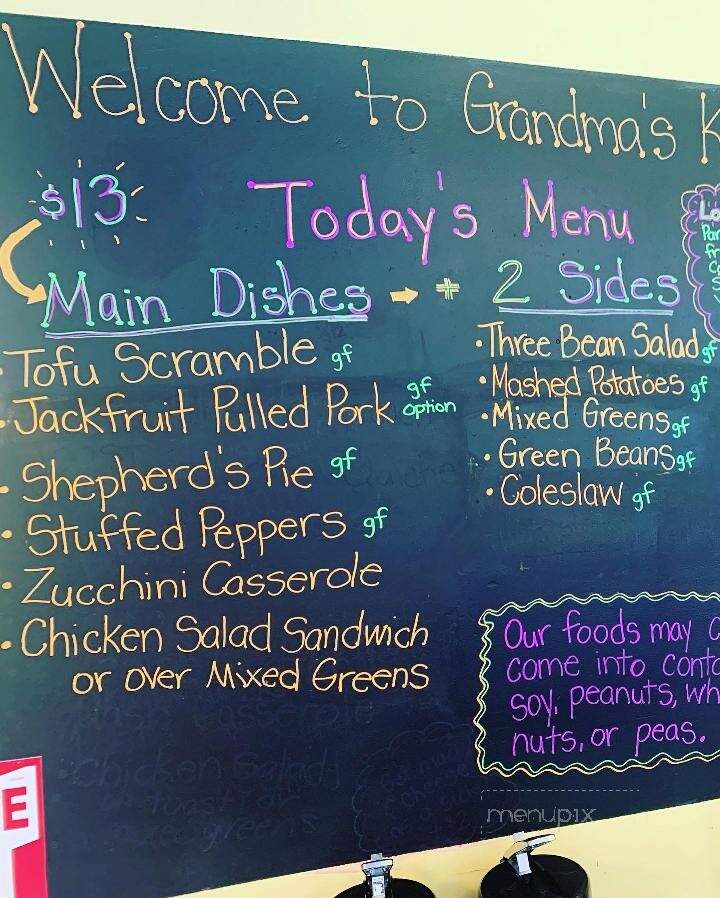 Welcome to Grandma's K
$13
Today's Menu
Main Dishes → + 2 Sides
• Tofu Scramble gf
• Jackfruit Pulled Pork gf option
• Shepherd's Pie gf
• Stuffed Peppers gf
• Zucchini Casserole
• Chicken Salad Sandwich
or over Mixed Greens
• Three Bean Salad gf
• Mashed Potatoes gf
• Mixed Greens gf
• Green Beans gf
• Coleslaw gf
Our foods may
come into
soy, peanuts,
nuts, or peas.
E
menupix